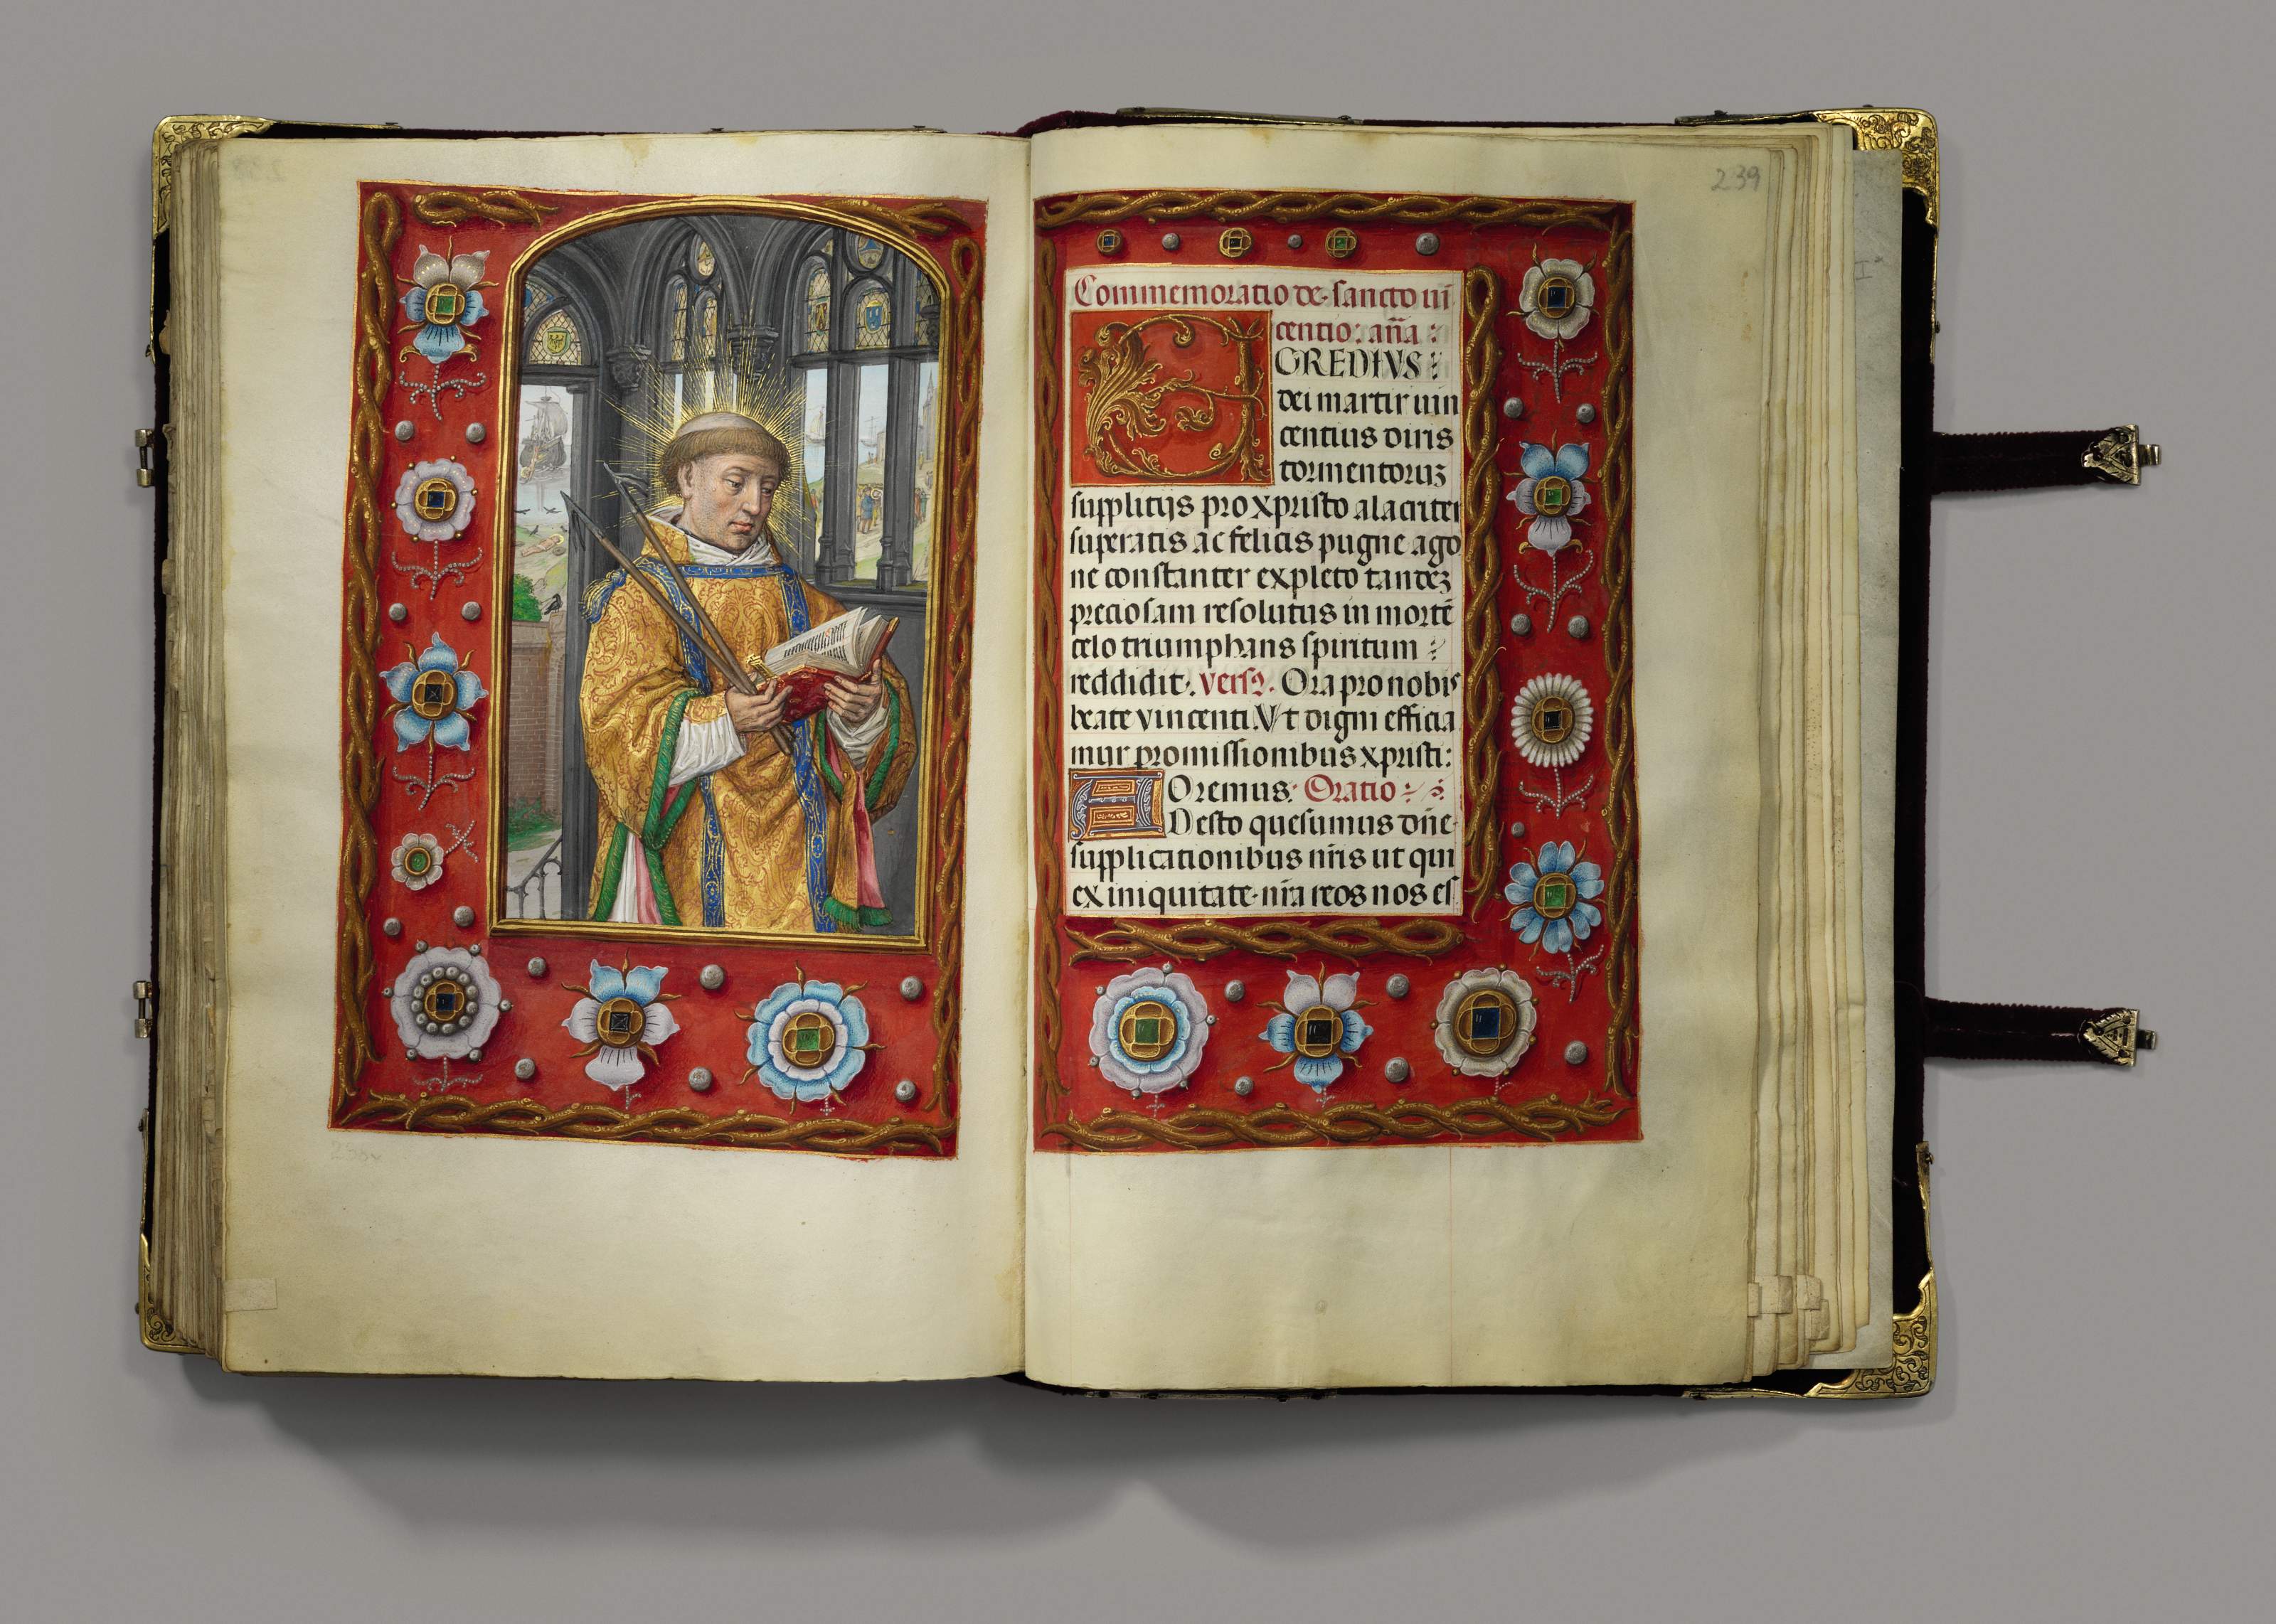 239
Commemoratio de sancto vi
centio: an̄a :
EGREDIVS :
dei martir vin
centius diris
tormentoruz
supplitijs pro xpristo alacriter
superatis ac felicis pugne ago
ne constanter expleto tandez
preciosam resolutus in mortē
celo triumphans spiritum :
reddidit. Vers9. Ora pro nobis
beate vincenti. Vt digni efficia
mur promissionibus xpristi:
Oremus. Oratio :
ADesto quesumus dn̄e
supplicationibus nr̄is ut qui
ex iniquitate nr̄a reos nos es